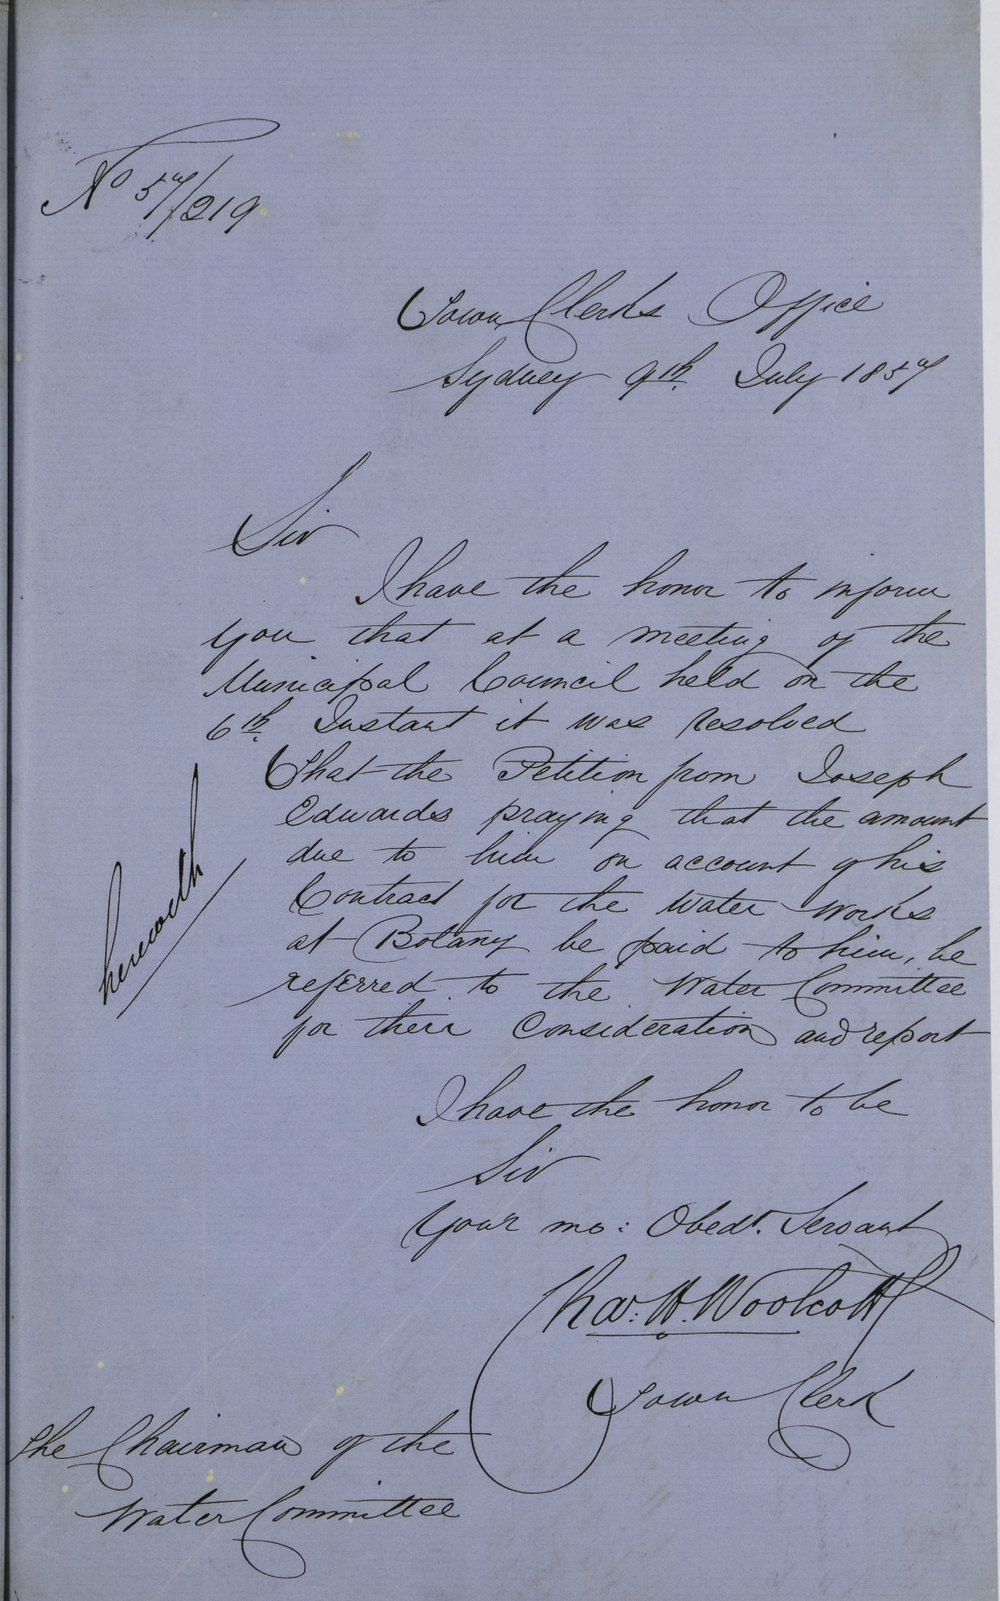 No 57/219
Town Clerks Office
Sydney 9th. July 1857
Sir
I have the honor to inform
you that at a meeting of the
Municipal Council held on the
6th. Instant it was resolved
That the Petition from Joseph
Edwards praying that the amount
due to him on account of his
Contract for the Water Works
at Botany be paid to him, be
referred to the Water Committee
for their Consideration and report
herewith
I have the honor to be
Sir
Your mo: Obedt. Servant
Chas. H. Woolcott
Town Clerk
The Chairman of the
Water Committee